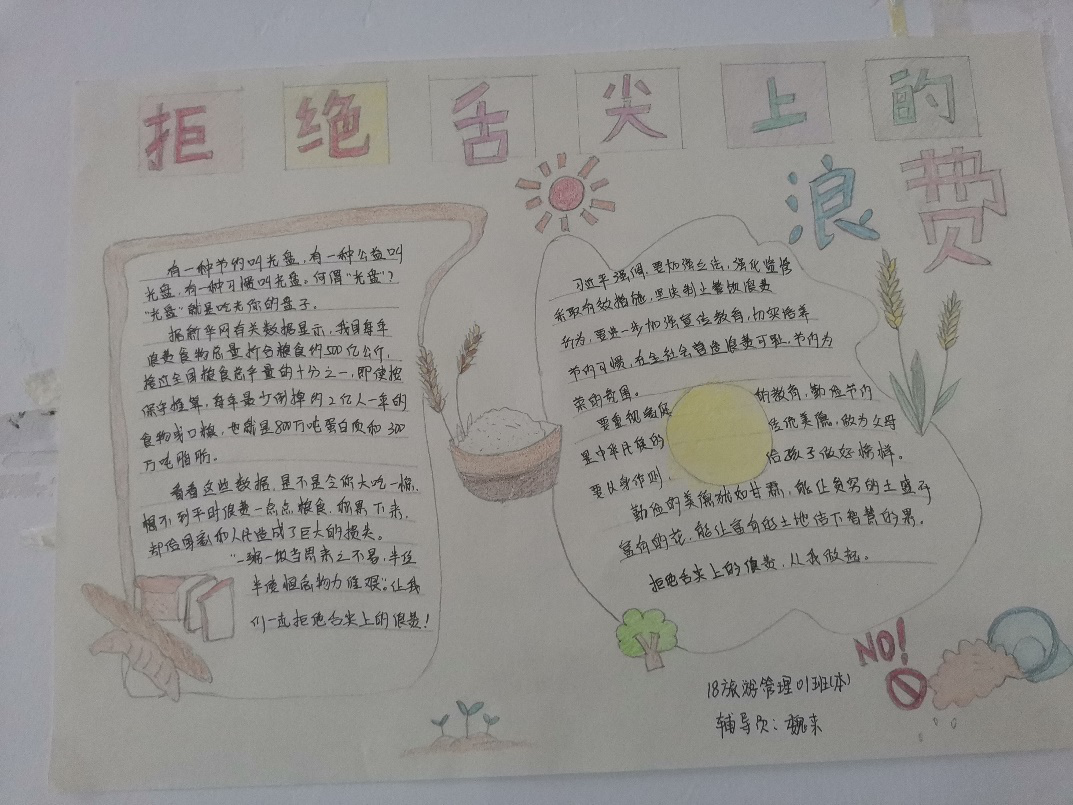 拒绝舌尖上的
浪费
有一种节约叫光盘，有一种公益叫
光盘，有一种习惯叫光盘。何谓“光盘”？
“光盘”就是吃光你的盘子。
据新华网有关数据显示，我国每年
浪费食物总量折合粮食约500亿公斤，
接近全国粮食总产量的十分之一，即使按
保守推算，每年最少倒掉约2亿人一年的
食物或口粮，也就是800万吨蛋白质和300
万吨脂肪。
看着这些数据，是不是令你大吃一惊，
想不到平时浪费一点点粮食，积累下来，
却给国家和人民造成了巨大的损失。
“一粥一饭当思来之不易，半丝
半缕恒念物力维艰”。让我
们一起拒绝舌尖上的浪费！
习近平强调，要加强立法，强化监管
采取有效措施，坚决制止餐饮浪费
行为，要进一步加强宣传教育，切实培养
节约习惯，在全社会营造浪费可耻、节约为
荣的氛围。
要重视 的教育，勤俭节约
是中华民族的 传统美德，做为父母
要以身作则 给孩子做好榜样。
勤俭的美德犹如甘霖，能让贫穷的土壤开
富有的花，能让富有的土地结下智慧的果。
拒绝舌尖上的浪费，从我做起。
NO!
18旅游管理01班(本)
辅导员：魏来